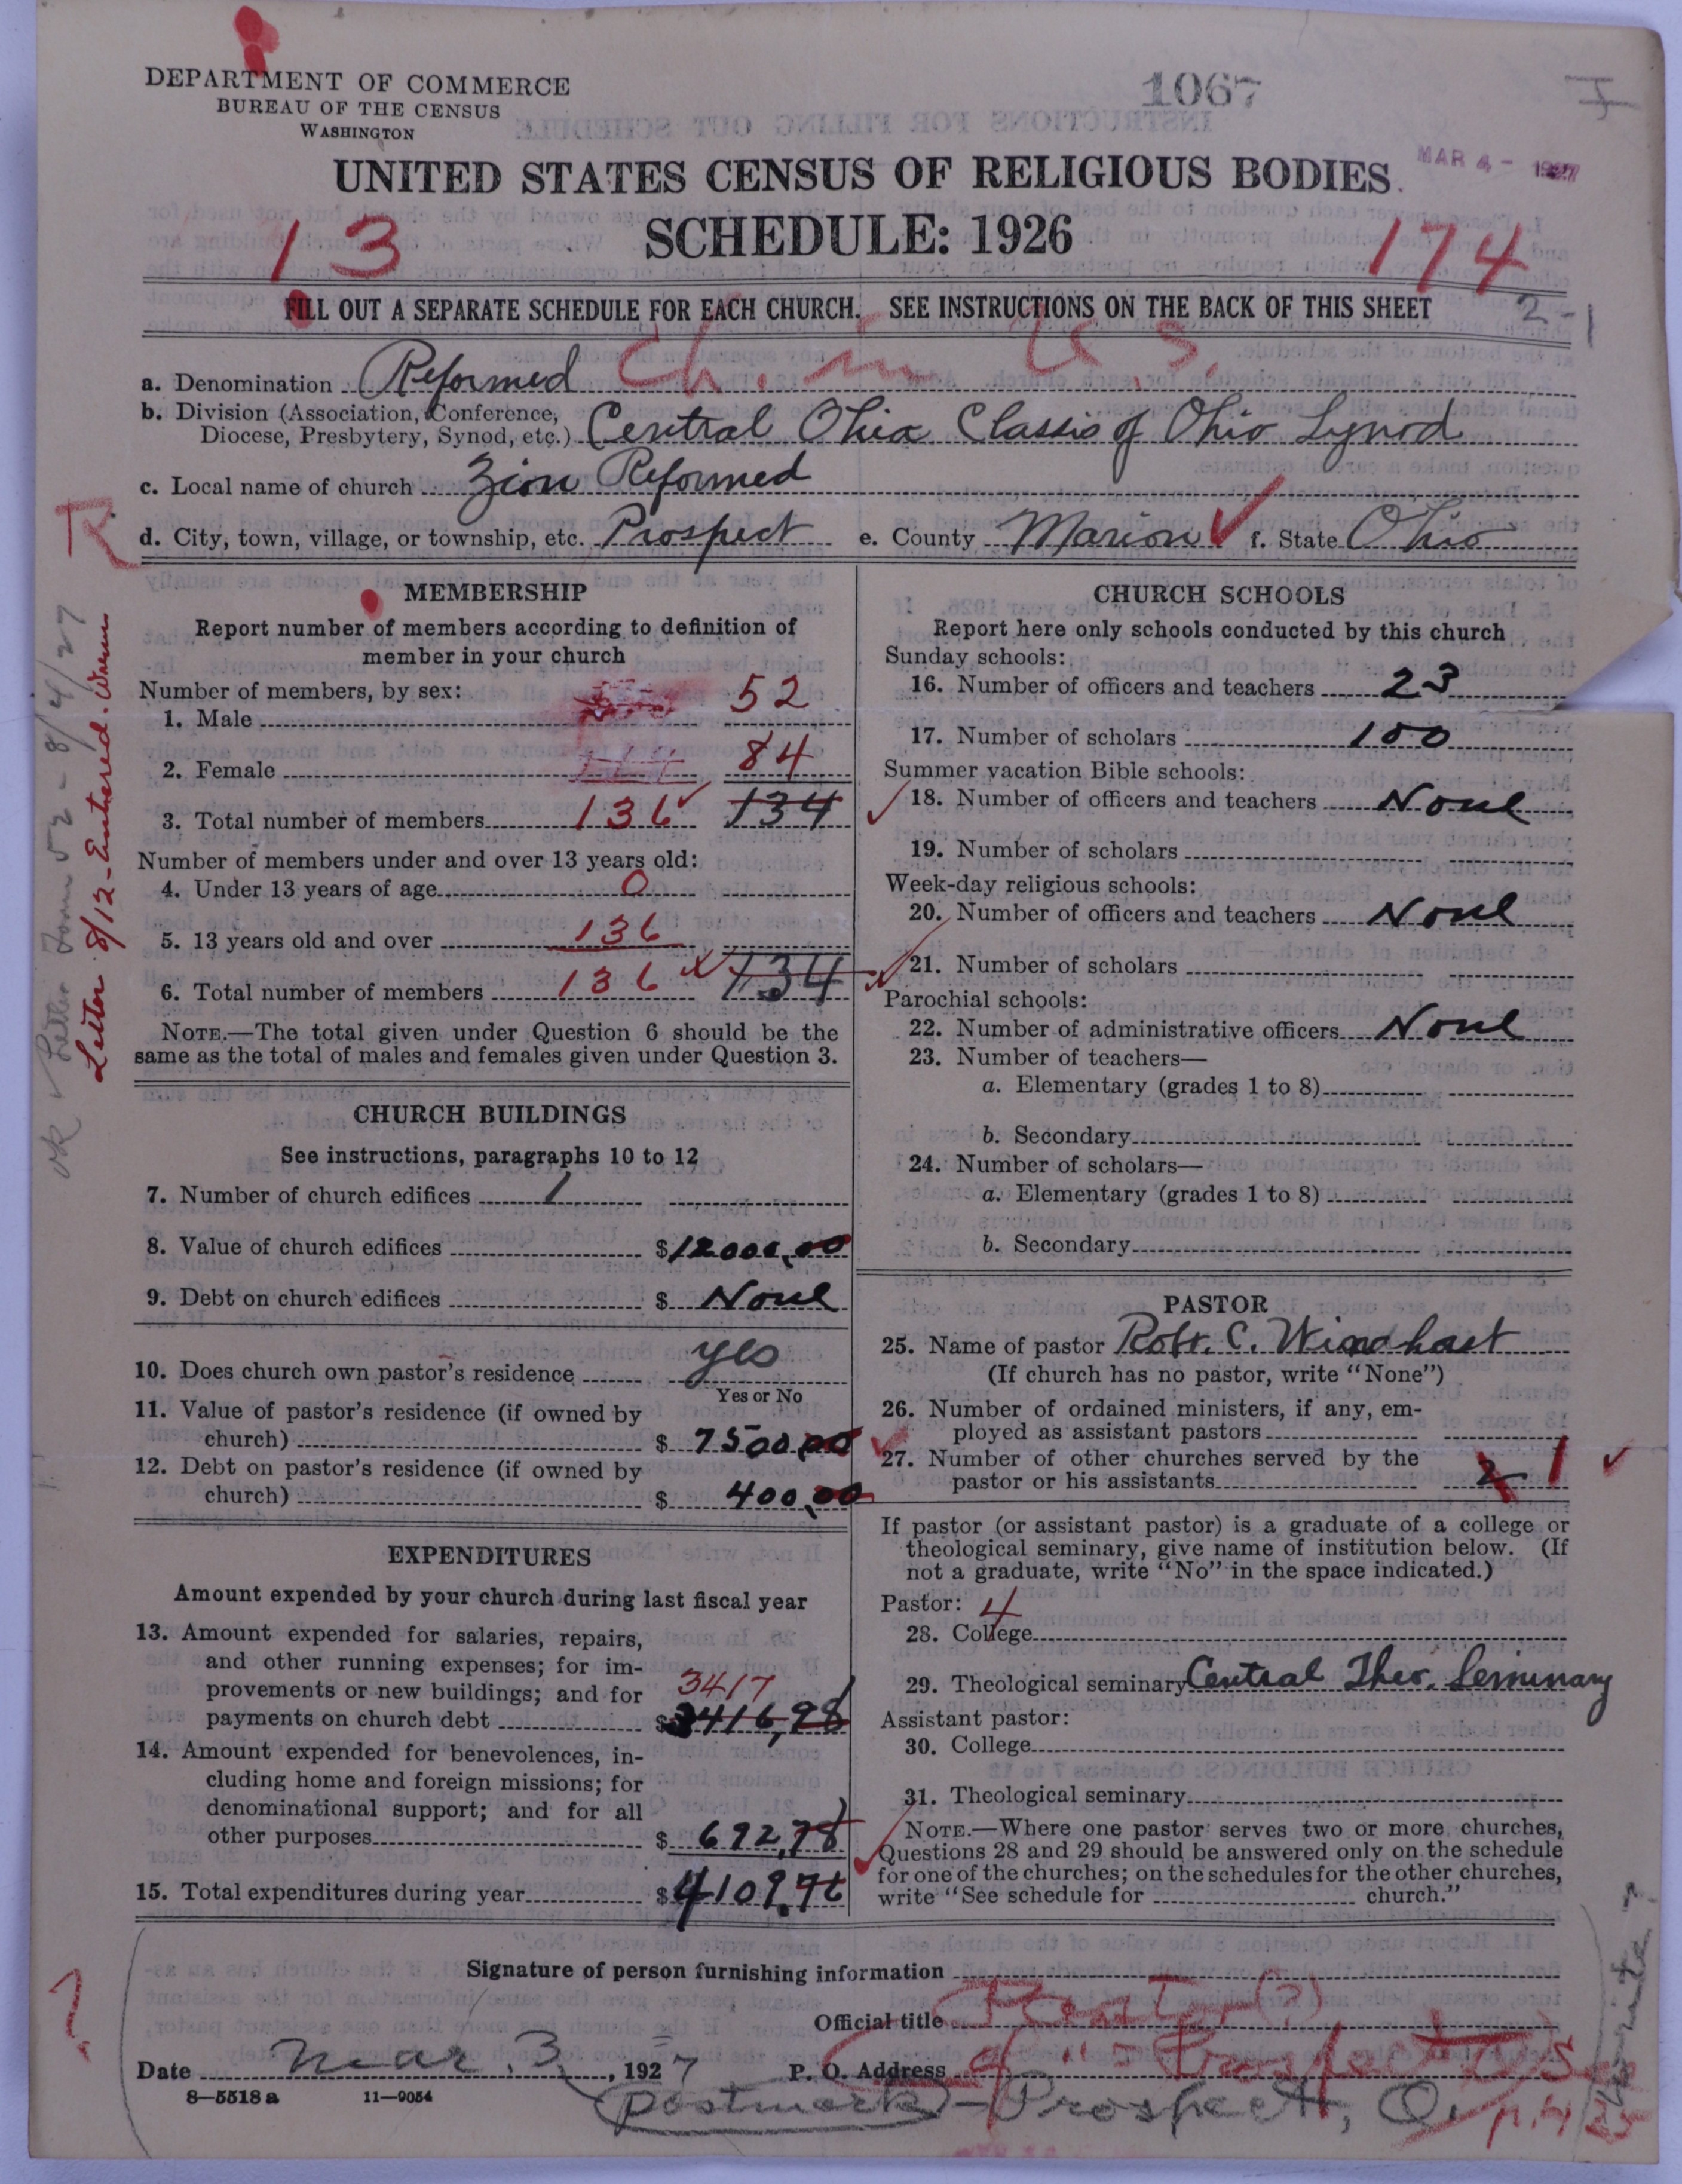 DEPARTMENT OF COMMERCE
BUREAU OF THE CENSUS
WASHINGTON
1067
UNITED STATES CENSUS OF RELIGIOUS BODIES
MAR 4 - 1927
SCHEDULE: 1926
13
174
FILL OUT A SEPARATE SCHEDULE FOR EACH CHURCH. SEE INSTRUCTIONS ON THE BACK OF THIS SHEET
2-1
a. Denomination Reformed Ch. in U.S.
b. Division (Association, Conference,
Diocese, Presbytery, Synod, etc.) Central Ohio Classis of Ohio Synod
c. Local name of church Zion Reformed
d. City, town, village, or township, etc. Prospect e. County Marion f. State Ohio
MEMBERSHIP
Report number of members according to definition of
member in your church
Number of members, by sex:
1. Male 52
2. Female 84
3. Total number of members 136 134
Number of members under and over 13 years old:
4. Under 13 years of age 0
5. 13 years old and over 136
6. Total number of members 136 134
NOTE.—The total given under Question 6 should be the
same as the total of males and females given under Question 3.
CHURCH BUILDINGS
See instructions, paragraphs 10 to 12
7. Number of church edifices 1
8. Value of church edifices $12000.00
9. Debt on church edifices $ None
10. Does church own pastor's residence yes
Yes or No
11. Value of pastor's residence (if owned by
church) $ 7500.00
12. Debt on pastor's residence (if owned by
church) $ 400.00
EXPENDITURES
Amount expended by your church during last fiscal year
13. Amount expended for salaries, repairs,
and other running expenses; for im-
provements or new buildings; and for 3417
payments on church debt $3416,98
14. Amount expended for benevolences, in-
cluding home and foreign missions; for
denominational support; and for all
other purposes $ 692,78
15. Total expenditures during year $4109.76
CHURCH SCHOOLS
Report here only schools conducted by this church
Sunday schools:
16. Number of officers and teachers 23
17. Number of scholars 100
Summer vacation Bible schools:
18. Number of officers and teachers None
19. Number of scholars
Week-day religious schools:
20. Number of officers and teachers None
21. Number of scholars
Parochial schools:
22. Number of administrative officers None
23. Number of teachers—
a. Elementary (grades 1 to 8)
b. Secondary
24. Number of scholars—
a. Elementary (grades 1 to 8)
b. Secondary
PASTOR
25. Name of pastor Robt. C. Windhorst
(If church has no pastor, write "None")
26. Number of ordained ministers, if any, em-
ployed as assistant pastors
27. Number of other churches served by the
pastor or his assistants 2 1
If pastor (or assistant pastor) is a graduate of a college or
theological seminary, give name of institution below. (If
not a graduate, write "No" in the space indicated.)
Pastor: 4
28. College
29. Theological seminary Central Theo. Seminary
Assistant pastor:
30. College
31. Theological seminary
NOTE.—Where one pastor serves two or more churches,
Questions 28 and 29 should be answered only on the schedule
for one of the churches; on the schedules for the other churches,
write "See schedule for church."
Signature of person furnishing information
Official title
Date Mar. 3, 1927 P. O. Address
8-5518a 11-9054
Postmark - Prospect, O.
ok Letter Form 52 - 8/4/27
Letter 8/12 - Entered.